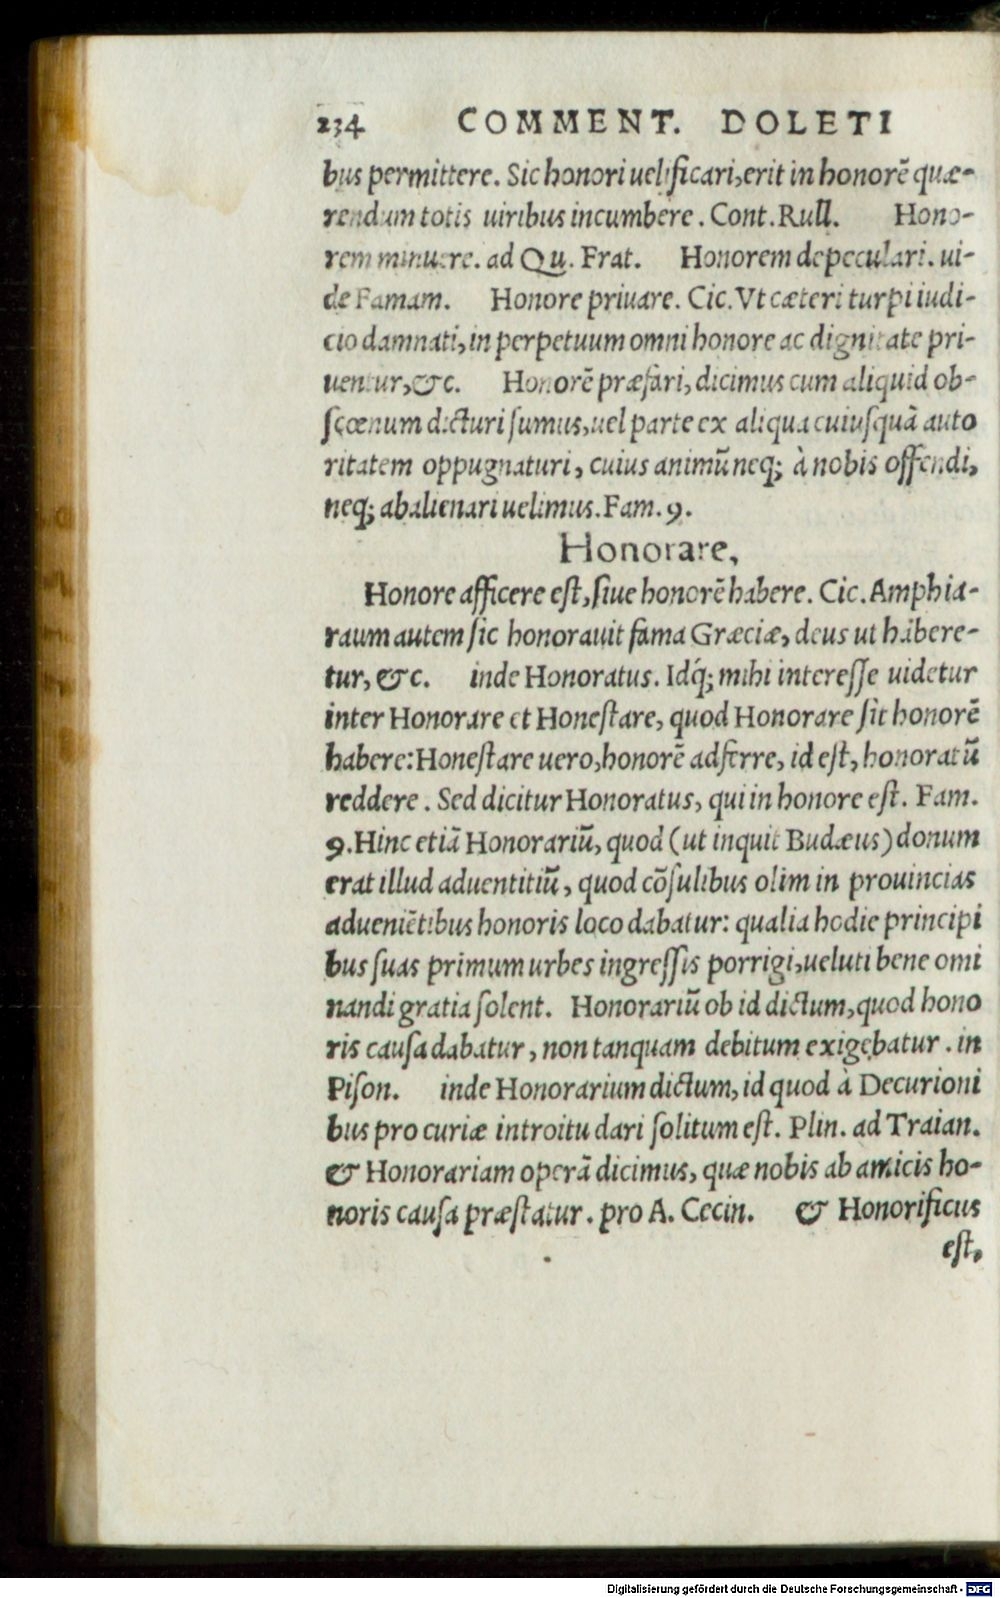 234 COMMENT. DOLETI
bus permittere. Sic honori uelificari, erit in honorē quæ-
rendum totis uiribus incumbere. Cont. Rull. Hono-
rem minuere. ad Qu. Frat. Honorem depeculari. ui-
de Famam. Honore priuare. Cic. Vt cæteri turpi iudi-
cio damnati, in perpetuum omni honore ac dignitate pri-
uentur, &c. Honorē præfari, dicimus cum aliquid ob-
scœnum dicturi sumus, uel parte ex aliqua cuiusquā auto
ritatem oppugnaturi, cuius animū neq; à nobis offendi,
neq; abalienari uelimus. Fam. 9.
Honorare,
Honore afficere est, siue honorē habere. Cic. Amphia-
raum autem sic honorauit fama Græciæ, deus ut habere-
tur, &c. inde Honoratus. Idq́; mihi interesse uidetur
inter Honorare et Honestare, quod Honorare sit honorē
habere: Honestare uero, honorē adferre, id est, honoratū
reddere. Sed dicitur Honoratus, qui in honore est. Fam.
9. Hinc etiā Honorariū, quod (ut inquit Budæus) donum
erat illud aduentitiū, quod cōsulibus olim in prouincias
adueniētibus honoris loco dabatur: qualia hodie principi
bus suas primum urbes ingressis porrigi, ueluti bene omi
nandi gratia solent. Honorariū ob id dictum, quod hono
ris causa dabatur, non tanquam debitum exigebatur. in
Pison. inde Honorarium dictum, id quod à Decurioni
bus pro curiæ introitu dari solitum est. Plin. ad Traian.
& Honorariam operā dicimus, quæ nobis ab amicis ho-
noris causa præstatur. pro A. Cecin. & Honorificus
est,
Digitalisierung gefördert durch die Deutsche Forschungsgemeinschaft - DFG